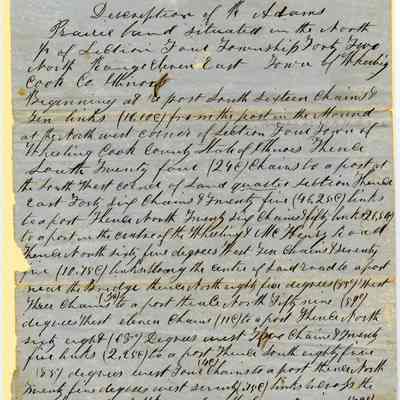 Description of K Adams
Prairie land situated in the North
½ of Section Four Township Forty Two
North Range Eleven East Town of Wheeling
Cook Co Illinois
Beginning at a post South Sixteen Chains &
Ten links (16.10C) from the post in the Mound
at the North west corner of Section Four Town of
Wheeling Cook County State of Illinois Thence
South Twenty four (24C) Chains to a post at
the South West corner of Said quarter section Thence
east Forty Six Chains & Twenty five (46,25C) links
to a post Thence North Twenty Six Chains & fifty links
to a post in the centre of the Wheeling & McHenry road
Thence North sixty five degrees West Ten Chains & Seventy
five (10.75C) links along the centre of Said road to a post
near the Bridge thence North eighty five degrees (85°) West
Three Chains to a post thence North Fifty nine (59°)
degrees West eleven Chains (11C) to a post Thence North
sixty eight (68°) Degrees west Two Chains & Twenty
five links (2,25C) to a post Thence South eighty five
(85°) degrees west Four Chains to a post thence North
Twenty five degrees west seventy links